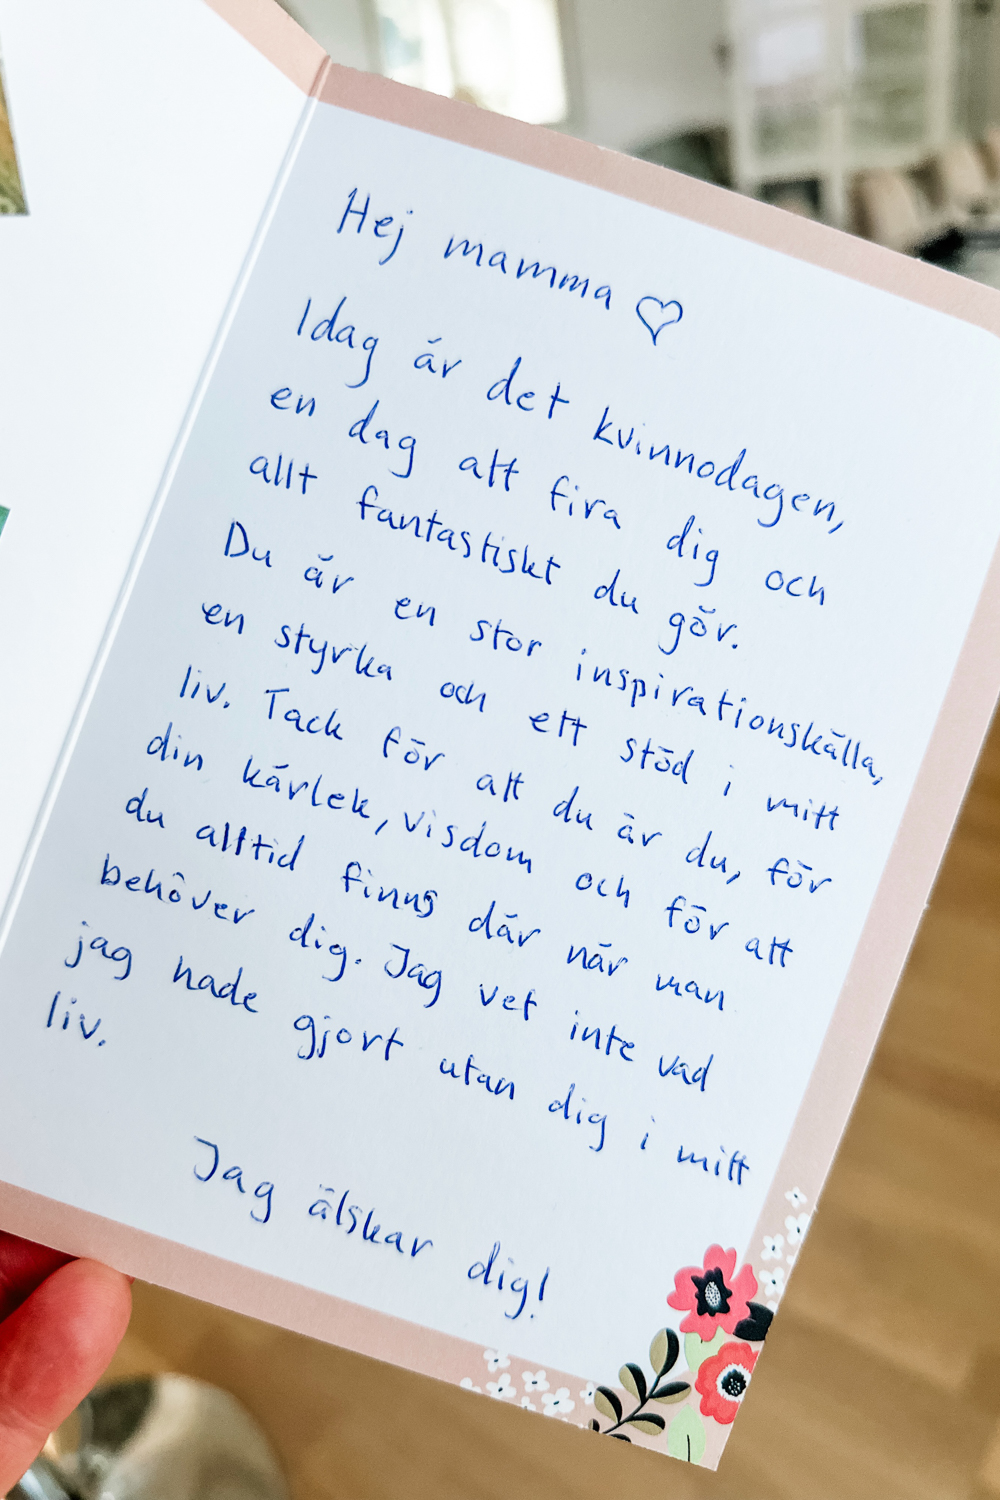 Hej mamma ♡
Idag är det kvinnodagen,
en dag att fira dig och
allt fantastiskt du gör.
Du är en stor inspirationskälla,
en styrka och ett stöd i mitt
liv. Tack för att du är du, för
din kärlek, visdom och för att
du alltid finns där när man
behöver dig. Jag vet inte vad
jag hade gjort utan dig i mitt
liv.
Jag älskar dig!